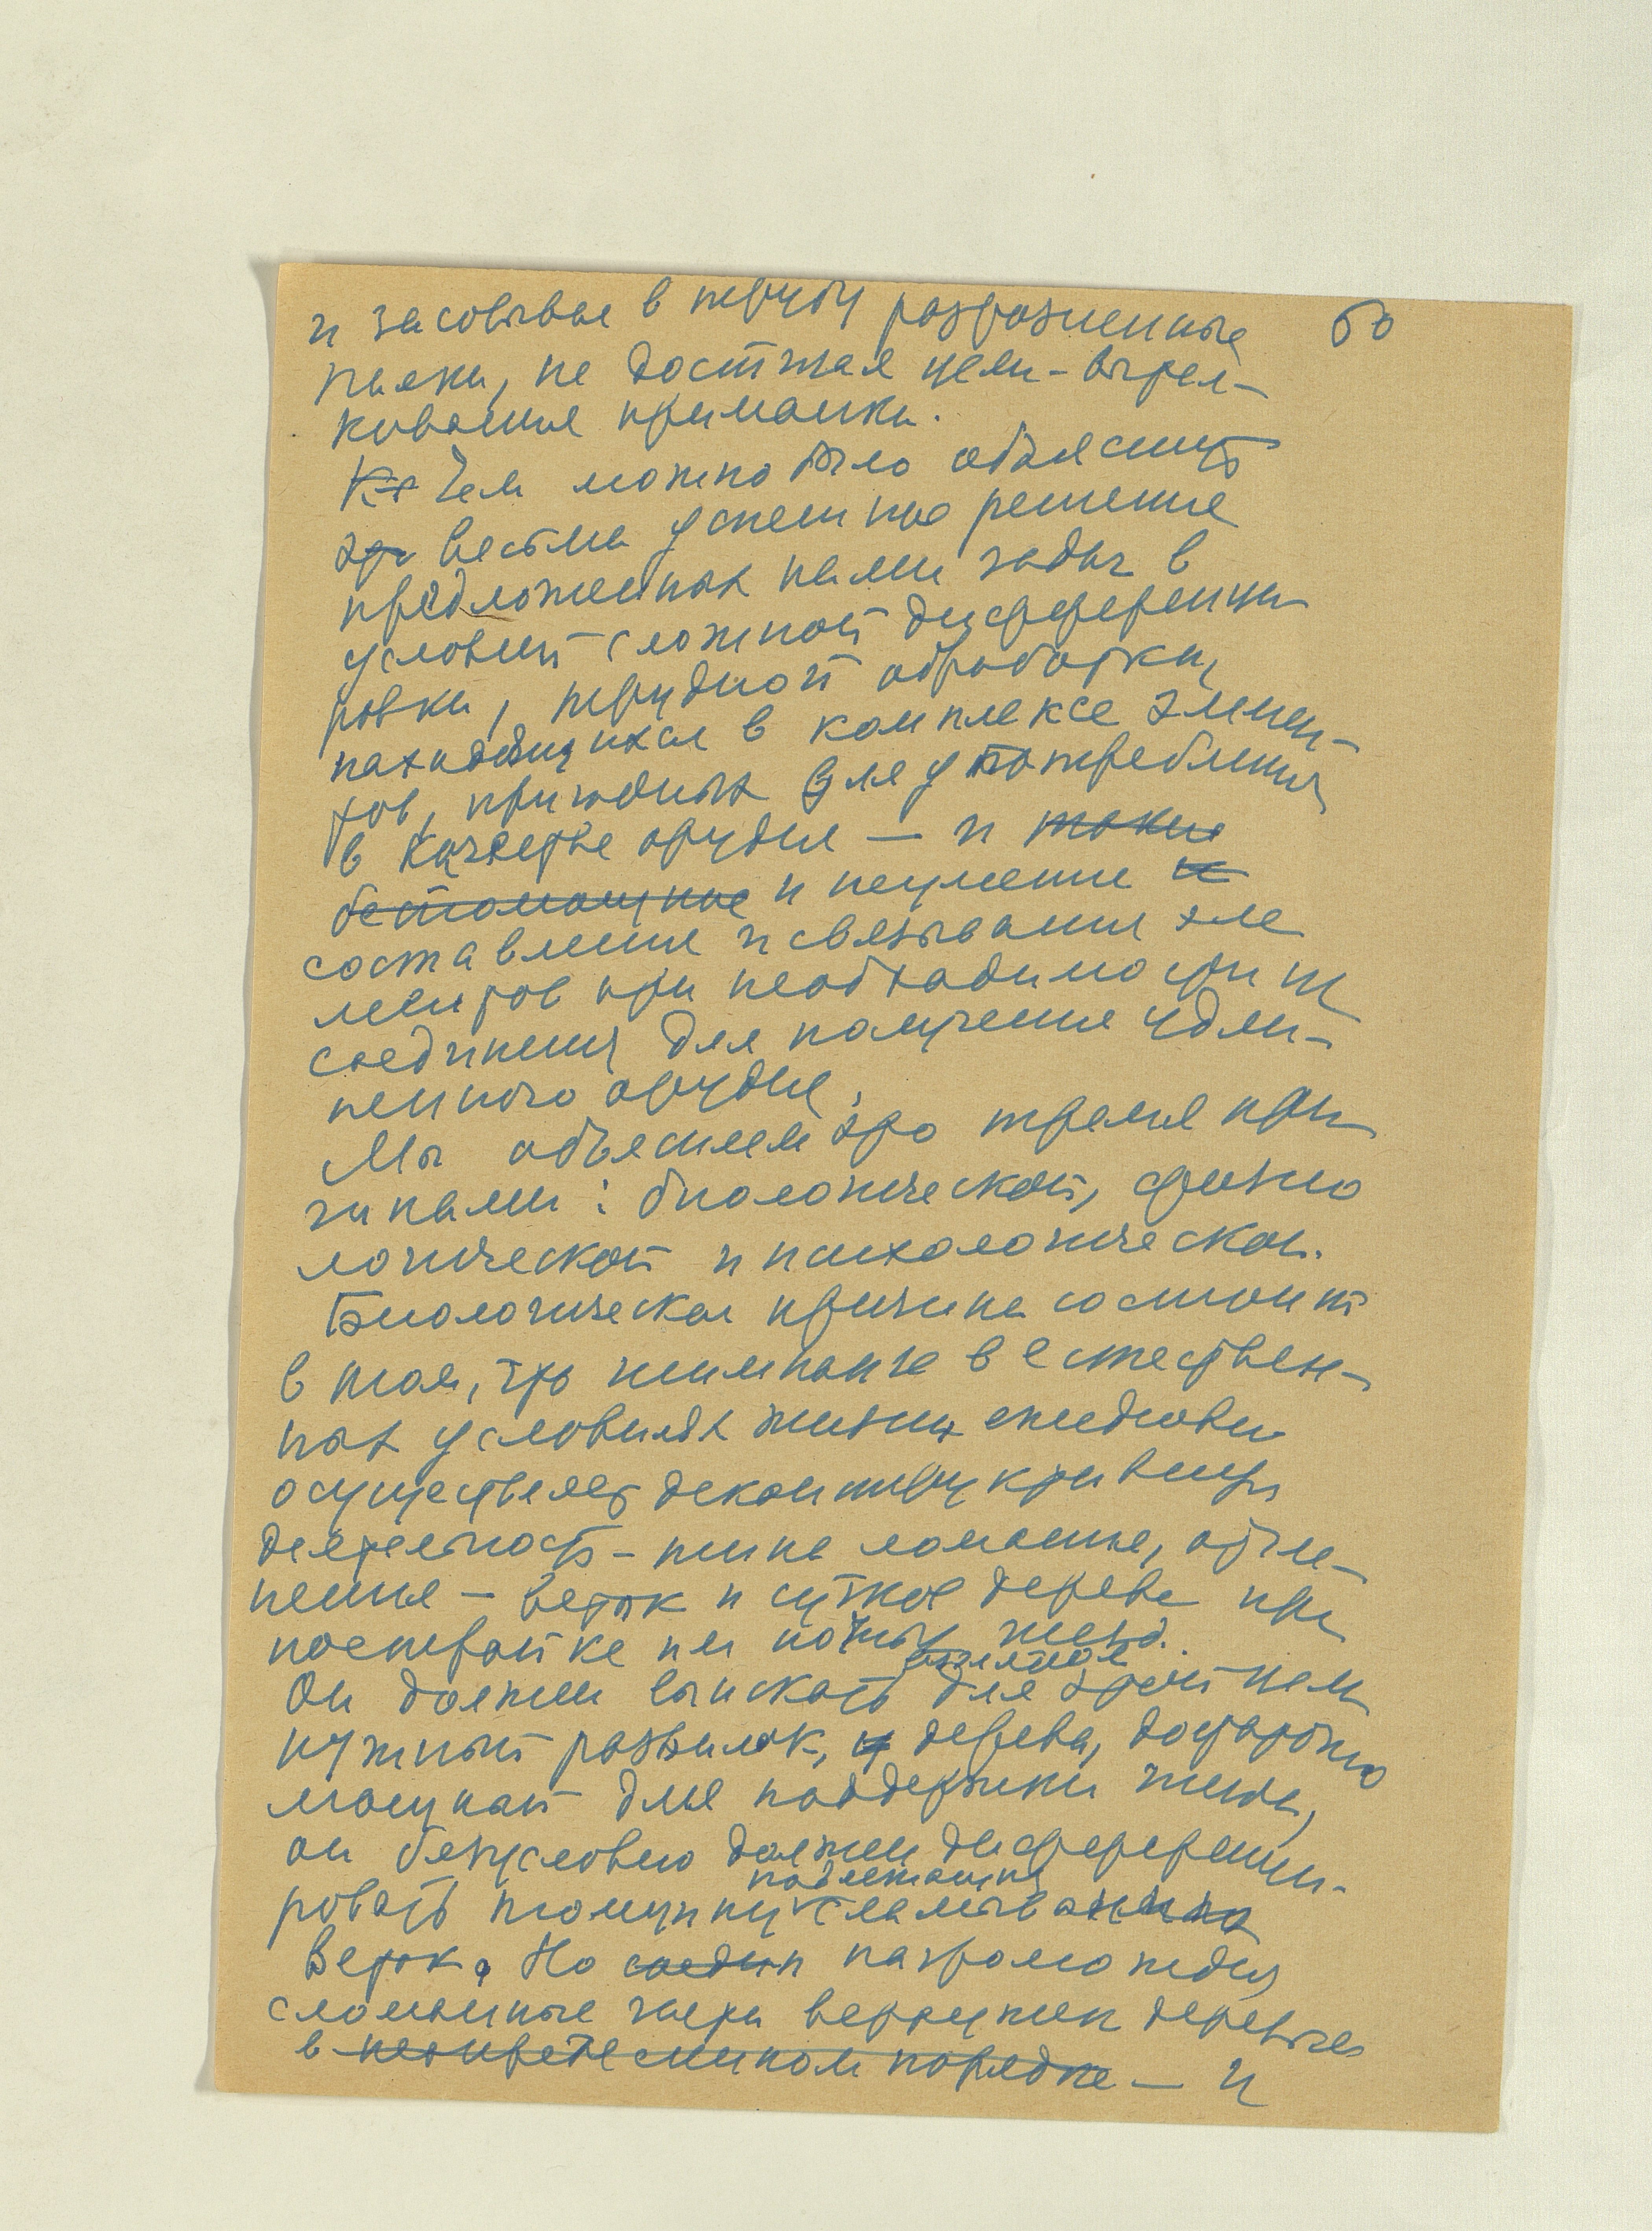 60
и засовывая в трубу разрозненные
палки, не достигая цели - вытал-
кивания приманки.
Чем можно было объяснить
весьма успешное решение
предложенных нами задач в
условии сложной дифференци
ровки, трудной обработки,
находящихся в комплексе элемен-
тов, пригодных для употребления
в качестве орудия — и такие
беспомощные и неумение и
составления и связывания эле
ментов при необходимости их
соединения для получения удли-
ненного орудия.
Мы объясняем это тремя при
чинами: биологической, физио
логической и психологической.
Биологическая причина состоит
в том, что шимпанзе в естествен-
ных условиях жизни ежедневно
осуществляет деконструктивную
деятельность - типа ломания, отчле-
нения — веток и сучков дерева при
постройке им ночных гнезд.
Он должен выискать для этой цели
нужный развилок, дерева, достаточно
мощный для поддержки гнезда,
он безусловно должен дифференци-
ровать толщину
подлежащих
сламыванию
веток. Но соедин нагромождая
сломанные части верхушек деревьев
в неопределенном порядке — и